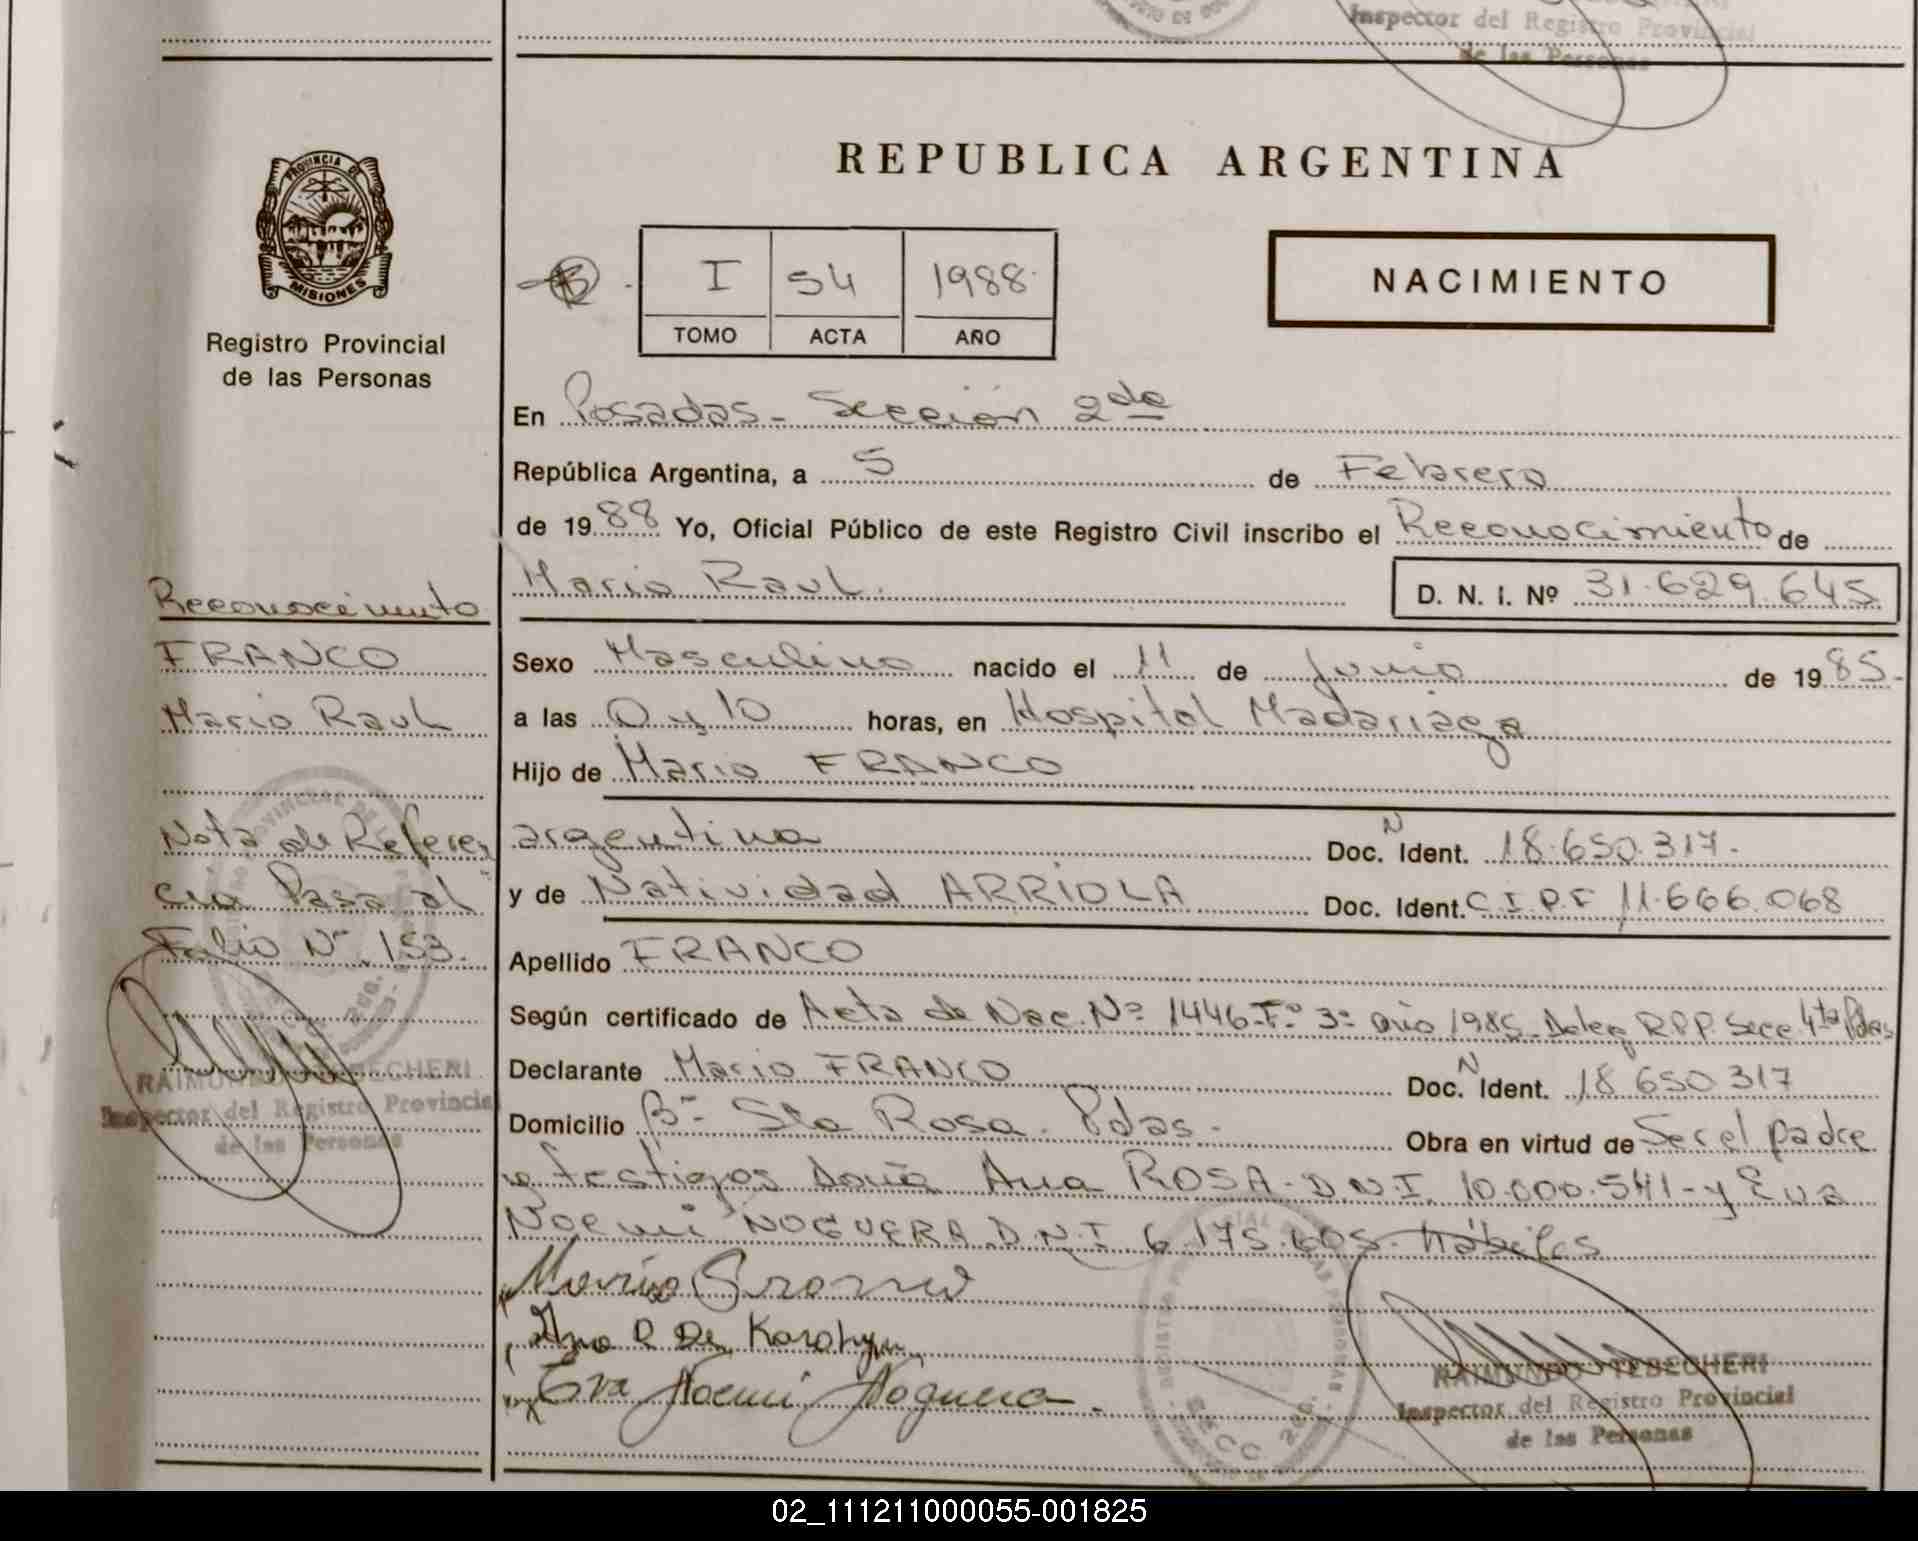 Inspector del Registro Provincial
de las Personas
PROVINCIA DE
MISIONES
Registro Provincial
de las Personas
REPUBLICA ARGENTINA
I 54 1988
TOMO ACTA AÑO
NACIMIENTO
En Posadas - Sección 2da
República Argentina, a 5 de Febrero
de 1988 Yo, Oficial Público de este Registro Civil inscribo el Reconocimiento de
Mario Raul. D. N. I. Nº 31.629.645
Reconocimiento
FRANCO
Mario Raul
Nota de Referen
cia Pasa al
Folio Nº 153.
RAIMUNDO TEBECHERI
Inspector del Registro Provincial
de las Personas
Sexo Masculino nacido el 11 de Junio de 1985-
a las 0 y 10 horas, en Hospital Madariaga
Hijo de Mario FRANCO
argentino Doc. N Ident. 18.650.317-
y de Natividad ARRIOLA Doc. Ident. C.I.P.F 11.666.068
Apellido FRANCO
Según certificado de Acta de Nac. Nº 1446-Tº 3º año 1985- Deleg R.P.P. Secc 4ta Pdas
Declarante Mario FRANCO Doc. N Ident. 18.650.317
Domicilio Bº Sta Rosa. Pdas. Obra en virtud de Ser el padre
y testigos Doña Ana ROSA- D.N.I. 10.000.541- y Eva
Noemi NOGUERA D.N.I 6.175.605- hábiles
Mario Franco
Ana R De
Eva Noemi Noguera.
SECC 2da
RAIMUNDO TEBECHERI
Inspector del Registro Provincial
de las Personas
02_111211000055-001825